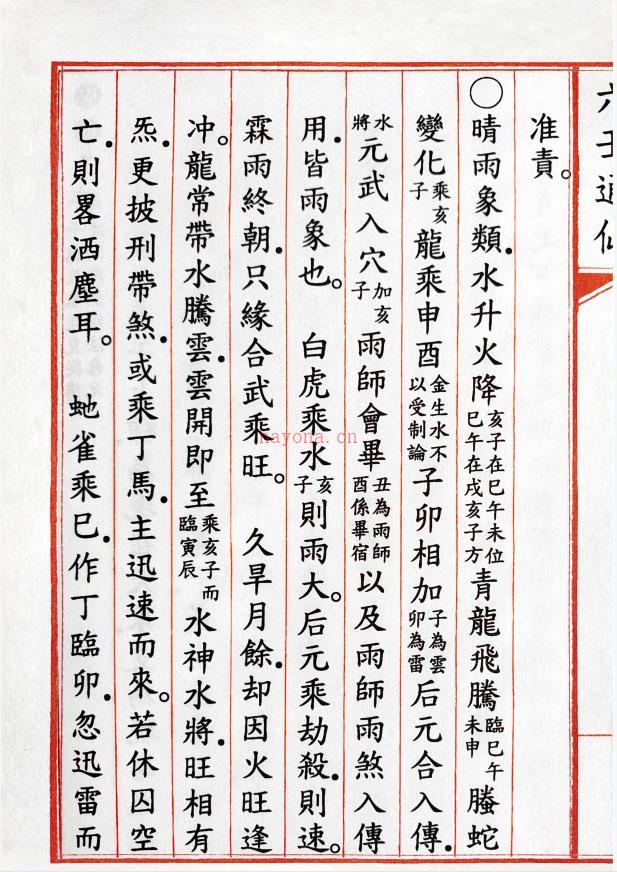 六壬通仙
准責。
○晴雨象類.水升火降亥子在巳午未位巳午在戌亥子方青龍飛騰臨巳午未申騰蛇
變化乘亥子龍乘申酉金生水不以受制論子卯相加子為雲卯為雷后元合入傳.
水將元武入穴加亥子雨師會畢丑為雨師酉係畢宿以及雨師雨煞入傳
用.皆雨象也。 白虎乘水亥子則雨大。后元乘劫殺.則速。
霖雨終朝.只緣合武乘旺。 久旱月餘.却因火旺逢
冲。龍常帶水騰雲.雲開即至乘亥子而臨寅辰水神水將.旺相有
炁.更披刑帶煞.或乘丁馬.主迅速而來。若休囚空
亡.則畧洒塵耳。 虵雀乘巳.作丁臨卯.忽迅雷而
nayona.cn